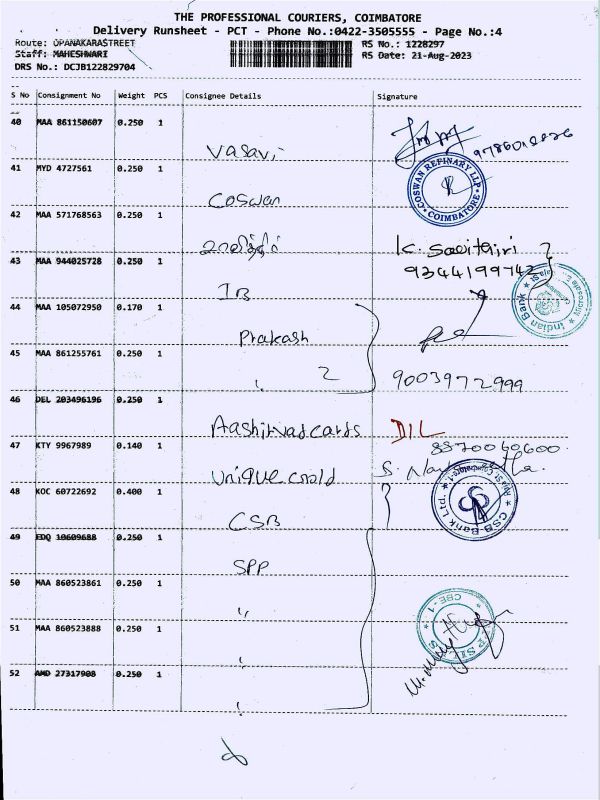 THE PROFESSIONAL COURIERS, COIMBATORE
Delivery Runsheet - PCT - Phone No.:0422-3505555 - Page No.:4
Route: OPANAKARASTREET
RS No.: 1228297
Staff: MAHESHWARI
RS Date: 21-Aug-2023
DRS No.: DCJB122829704
S No Consignment No Weight PCS Consignee Details Signature
40 MAA 861150607 0.250 1
Vasavi
41 MYD 4727561 0.250 1
COSWAN REFINARY LLP
COIMBATORE
Coswan
42 MAA 571768563 0.250 1
K. Savithiri
43 MAA 944025728 0.250 1
9344199742
IB
Indian Bank
44 MAA 105072950 0.170 1
Prakash
45 MAA 861255761 0.250 1
2
9003972999
46 DEL 203496196 0.250 1
Aashirvad cards DIL
47 KTY 9967989 0.140 1
8870040600
Unique
48 KOC 60722692 0.400 1
CSB
CSB Bank Ltd.
49 EDQ 10609688 0.250 1
SPP
50 MAA 860523861 0.250 1
"
51 MAA 860523888 0.250 1
CBE - 1
52 AMD 27317908 0.250 1